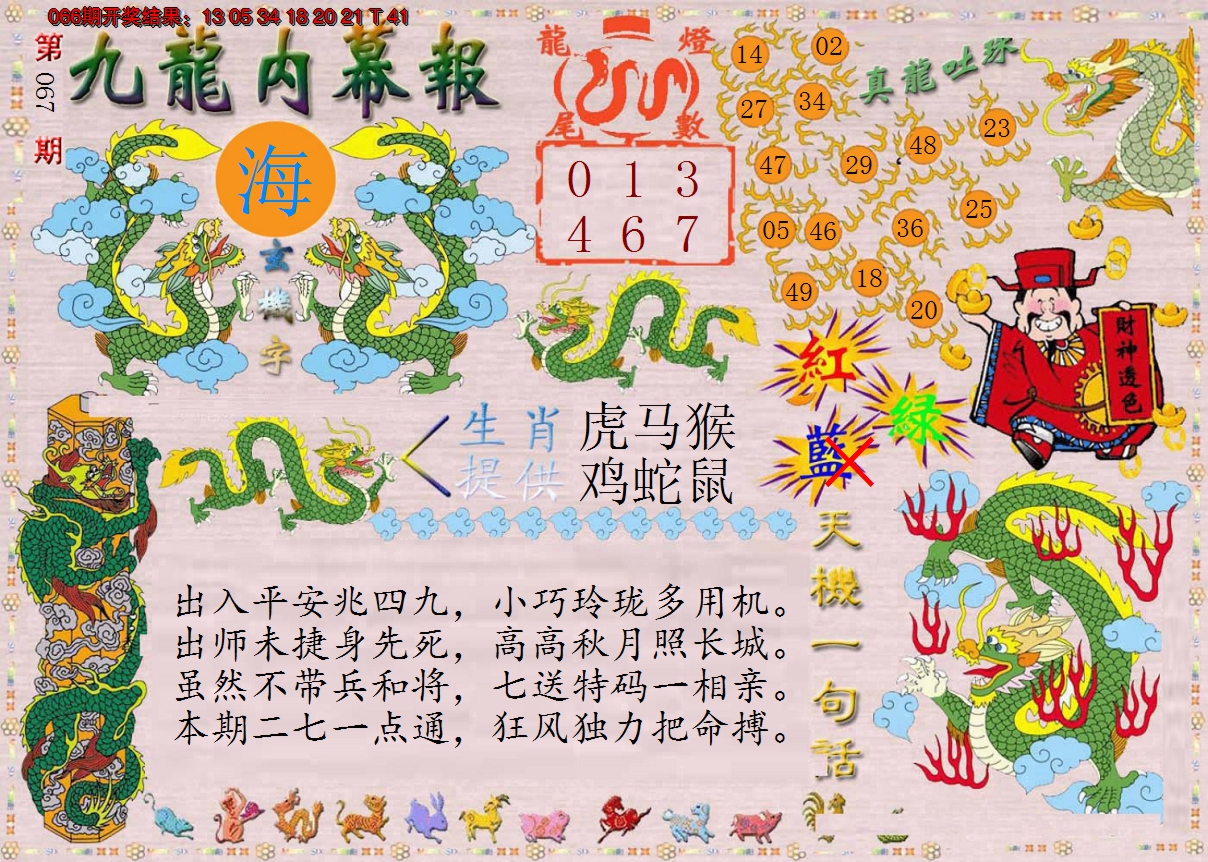 066期开奖结果：13 05 34 18 20 21 T 41
第
067
期
九龍内幕報
海
玄
機
字
龍 燈
尾 數
0 1 3
4 6 7
真龍吐珠
14
02
27
34
47
29
48
23
05
46
36
25
49
18
20
紅
綠
藍
財神透色
生肖 虎马猴
提供 鸡蛇鼠
天機一句話
出入平安兆四九，小巧玲珑多用机。
出师未捷身先死，高高秋月照长城。
虽然不带兵和将，七送特码一相亲。
本期二七一点通，狂风独力把命搏。